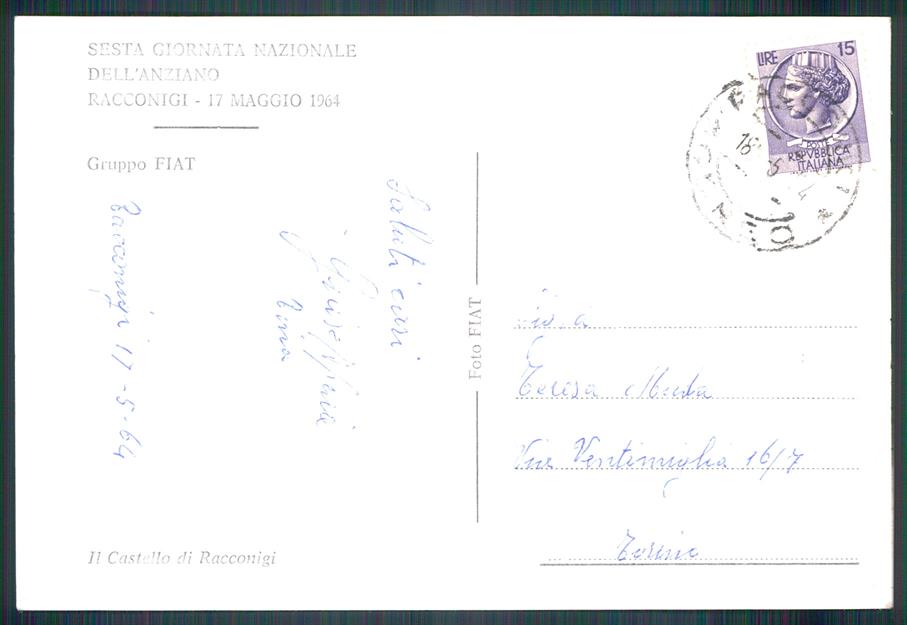 SESTA GIORNATA NAZIONALE
DELL'ANZIANO
RACCONIGI - 17 MAGGIO 1964
Gruppo FIAT
Racconigi 17-5-64
Saluti cari
Giuseppina
Il Castello di Racconigi
Foto FIAT
LIRE 15
POSTE
REPVBBLICA
ITALIANA
Teresa
Via Ventimiglia 16/7
Torino